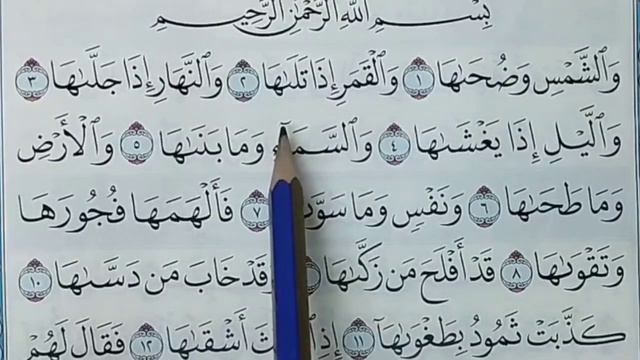 بِسْمِ اللَّهِ الرَّحْمَٰنِ الرَّحِيمِ
وَالشَّمْسِ وَضُحَىٰهَا ١ وَالْقَمَرِ إِذَا تَلَىٰهَا ٢ وَالنَّهَارِ إِذَا جَلَّىٰهَا ٣
وَالَّيْلِ إِذَا يَغْشَىٰهَا ٤ وَالسَّمَآءِ وَمَا بَنَىٰهَا ٥ وَالْأَرْضِ
وَمَا طَحَىٰهَا ٦ وَنَفْسٍ وَمَا ٧ فَأَلْهَمَهَا فُجُورَهَا
وَتَقْوَىٰهَا ٨ قَدْ أَفْلَحَ مَن زَكَّىٰهَا وَقَدْ خَابَ مَن دَسَّىٰهَا ١٠
كَذَّبَتْ ثَمُودُ بِطَغْوَىٰهَآ ١١ أَشْقَىٰهَا ١٢ فَقَالَ لَهُمْ